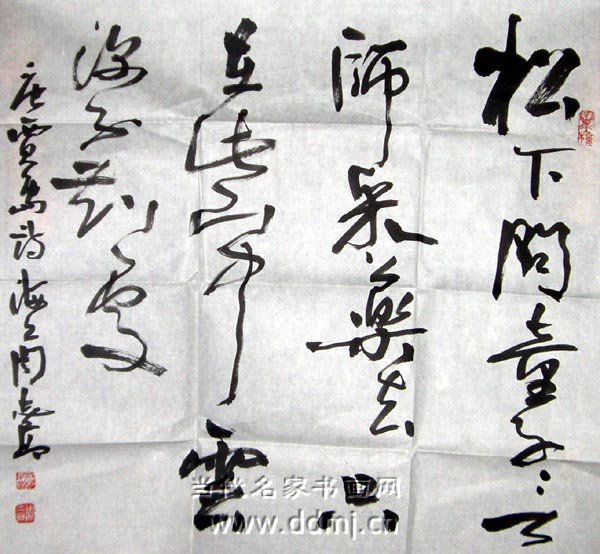 松下問童子言
師采藥去只
在此山中雲
深不知處
唐賈島詩 海上周
当代名家书画网
www.ddmj.cn